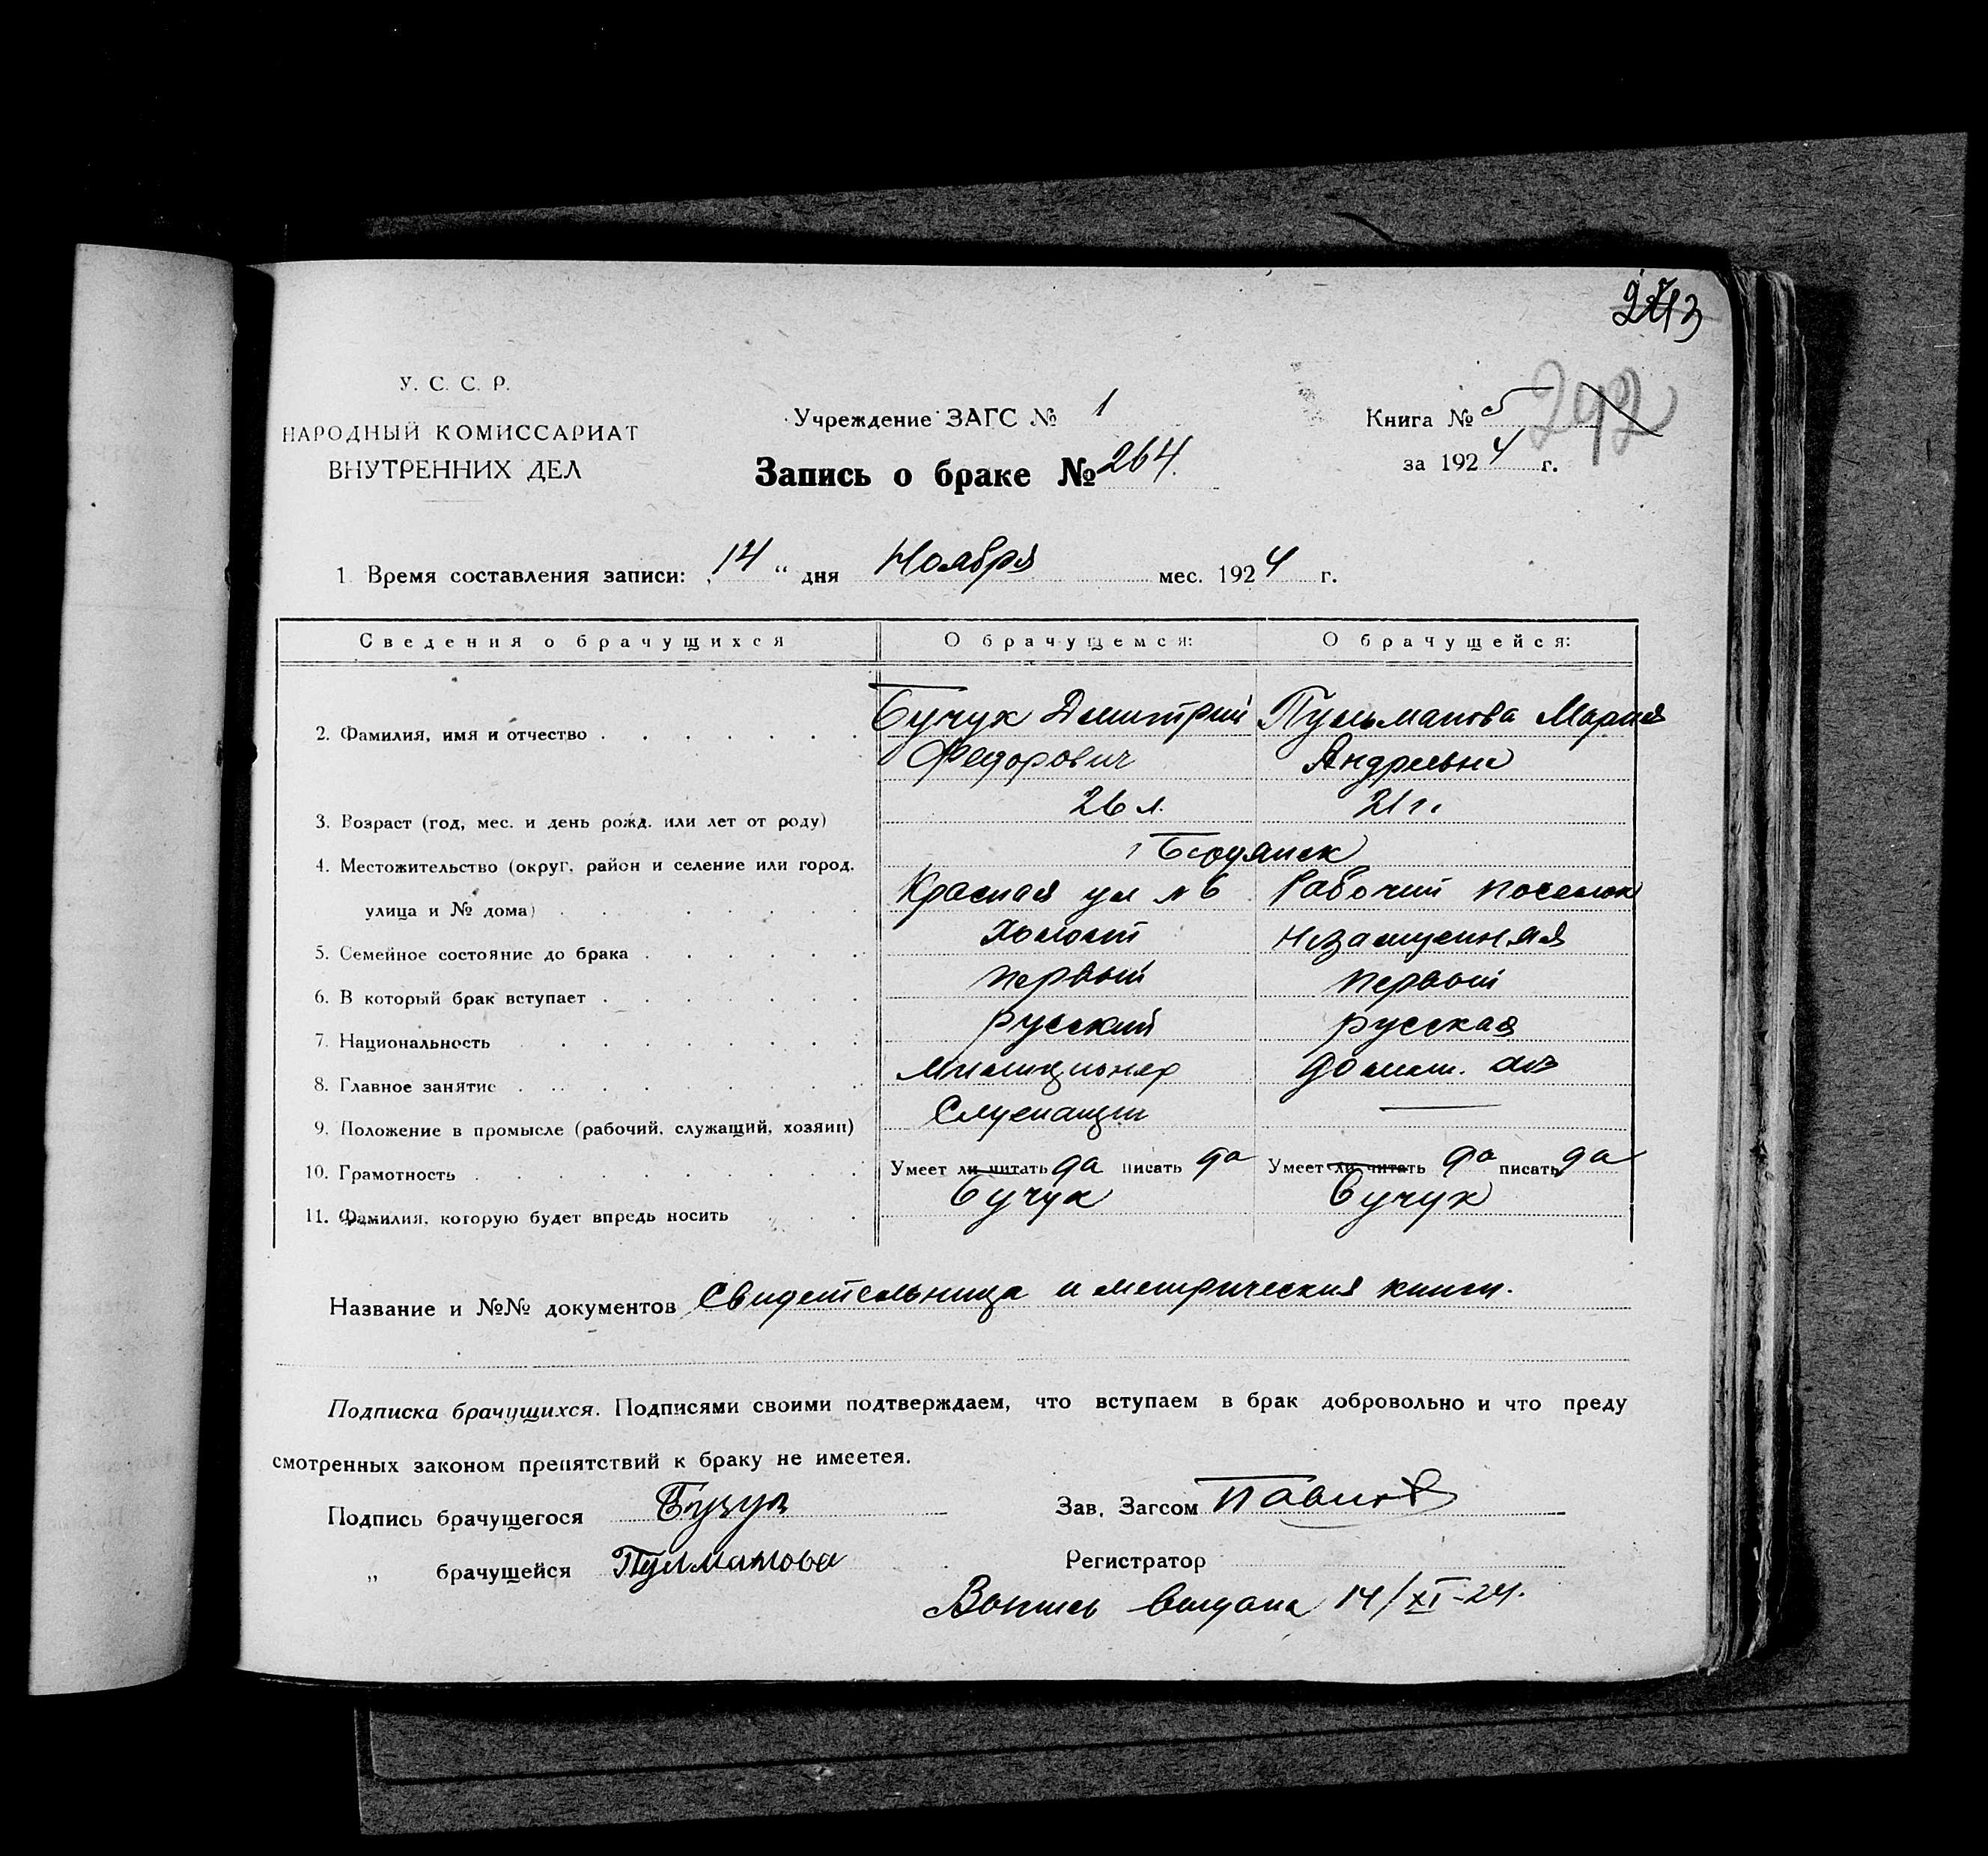 У. С. С. Р.
НАРОДНЫЙ КОМИССАРИАТ
ВНУТРЕННИХ ДЕЛ
Учреждение ЗАГС № 1
Запись о браке № 264.
Книга № 5
292
за 1924 г.
1. Время составления записи: „14“ дня Ноября мес. 1924 г.
Сведения о брачущихся О брачущемся: О брачущейся:
2. Фамилия, имя и отчество Бучук Димитрий Пульманова Мария
Федорович Андреевна
3. Возраст (год, мес. и день рожд. или лет от роду) 26 л. 21 г.
4. Местожительство (округ, район и селение или город,
улица и № дома) Красная ул № 6 Рабочий поселок
5. Семейное состояние до брака Холост незамужняя
6. В который брак вступает первый первый
7. Национальность русский русская
8. Главное занятие милиционер домаш. хоз
9. Положение в промысле (рабочий, служащий, хозяин) Служащий —
10. Грамотность Умеет ли читать да писать да Умеет ли читать да писать да
11. Фамилия, которую будет впредь носить Бучук Бучук
Название и №№ документов Свидетельница и метрическия книги.
Подписка брачущихся. Подписями своими подтверждаем, что вступаем в брак добровольно и что преду
смотренных законом препятствий к браку не имеетея.
Подпись брачущегося Бучук Зав. Загсом Павлов
„ брачущейся Пулманова Регистратор
выдана 14/XI-24.